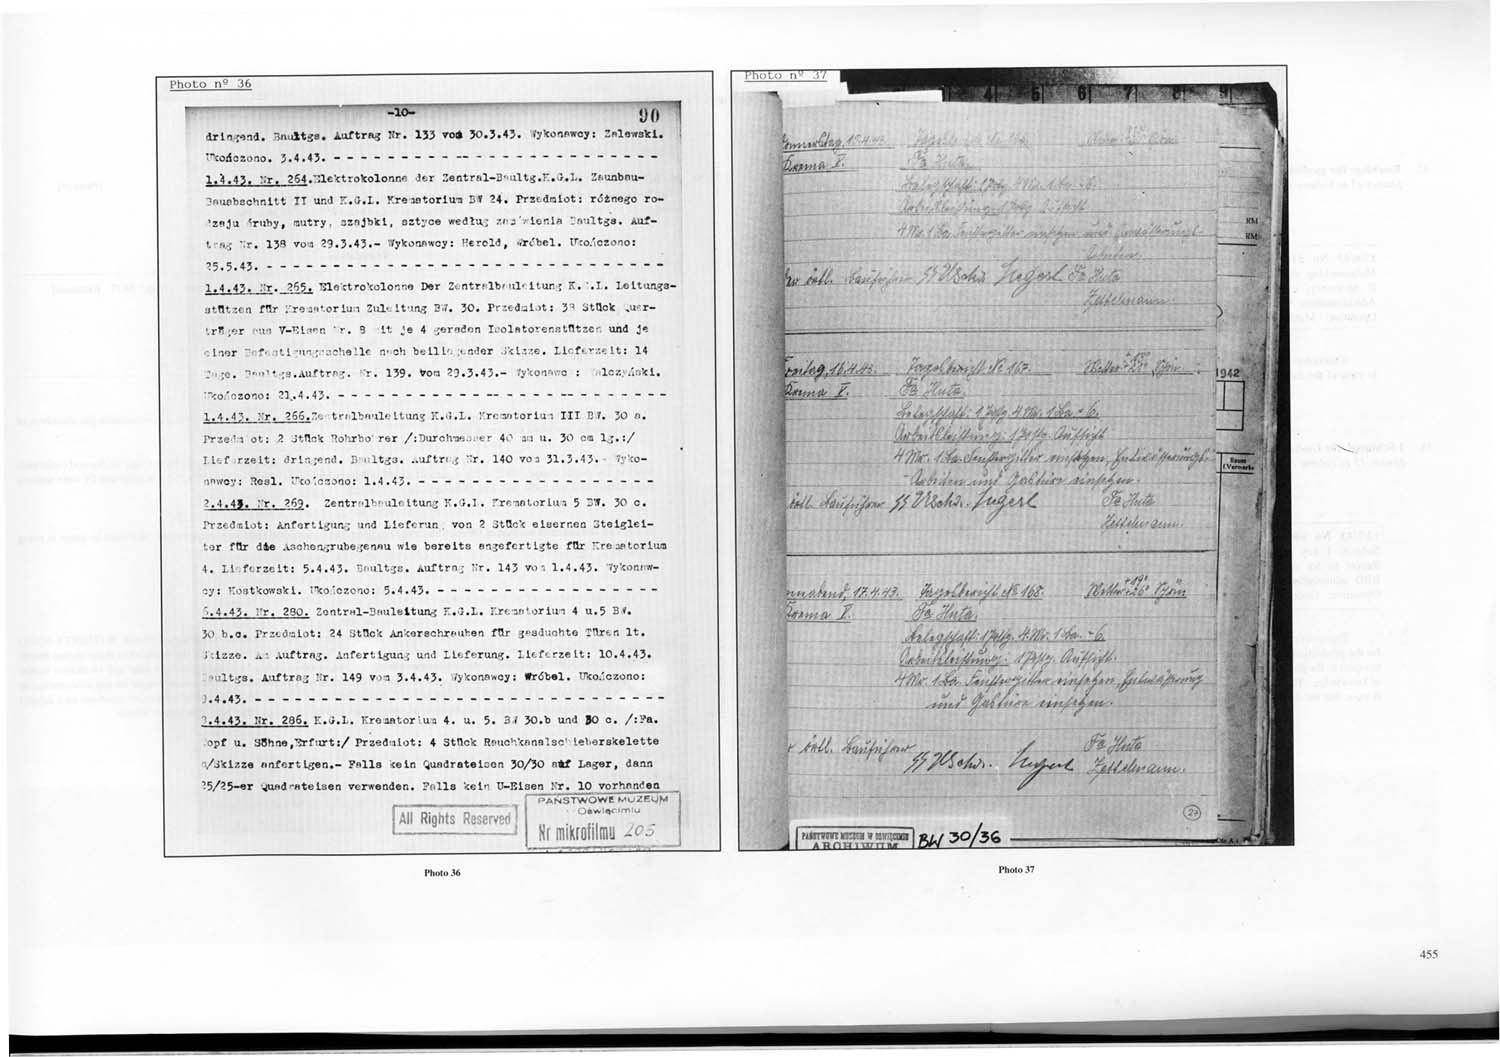 Photo nº 36
-10-
90
dringend. Baultgs. Auftrag Nr. 133 vom 30.3.43. Wykonawcy: Zalewski.
Ukończono. 3.4.43. - - - - - - - - - - - - - - - - - - - - - - - -
1.4.43. Nr. 264.Elektrokolonne der Zentral-Baultg.K.G.L. Zaunbau-
Bauabschnitt II und K.G.L. Krematorium BW 24. Przedmiot: różnego ro-
dzaju śruby, mutry, szajbki, sztyce według zamówienia Baultgs. Auf-
trag Nr. 138 vom 29.3.43.- Wykonawcy: Herold, Wróbel. Ukończono:
25.5.43. - - - - - - - - - - - - - - - - - - - - - - - - - - - - -
1.4.43. Nr. 265. Elektrokolonne Der Zentralbauleitung K.G.L. Leitungs-
stützen für Krematorium Zuleitung BW. 30. Przedmiot: 38 Stück Quer-
träger aus V-Eisen Nr. 8 mit je 4 geraden Isolatorenstützen und je
einer Befestigungsschelle nach beiliegender Skizze. Lieferzeit: 14
Tage. Baultgs.Auftrag. Nr. 139. vom 29.3.43.- Wykonawc : Walczyński.
Ukończono: 21.4.43. - - - - - - - - - - - - - - - - - - - - - - -
1.4.43. Nr. 266.Zentralbauleitung K.G.L. Krematorium III BW. 30 a.
Przedmiot: 2 Stück Rohrbohrer /:Durchmesser 40 mm u. 30 cm lg.:/
Lieferzeit: dringend. Baultgs. Auftrag Nr. 140 vom 31.3.43.- Wyko-
nawcy: Resl. Ukończono: 1.4.43. - - - - - - - - - - - - - - - - -
2.4.43. Nr. 269. Zentralbauleitung K.G.L. Krematorium 5 BW. 30 c.
Przedmiot: Anfertigung und Lieferung von 2 Stück eisernen Steiglei-
ter für die Aschengrubegenau wie bereits angefertigte für Krematorium
4. Lieferzeit: 5.4.43. Baultgs. Auftrag Nr. 143 vom 1.4.43. Wykonaw-
cy: Kostkowski. Ukończono: 5.4.43. - - - - - - - - - - - - - - - -
6.4.43. Nr. 280. Zentral-Bauleitung K.G.L. Krematorium 4 u.5 BW.
30 b.c. Przedmiot: 24 Stück Ankerschrauben für gasduchte Türen lt.
Skizze. Am Auftrag. Anfertigung und Lieferung. Lieferzeit: 10.4.43.
Baultgs. Auftrag Nr. 149 vom 3.4.43. Wykonawcy: Wróbel. Ukończono:
9.4.43. - - - - - - - - - - - - - - - - - - - - - - - - - - - - -
8.4.43. Nr. 286. K.G.L. Krematorium 4. u. 5. BW 30.b und 30 c. /:Fa.
Topf u. Söhne,Erfurt:/ Przedmiot: 4 Stück Rauchkanalschieberskelette
n/Skizze anfertigen.- Falls kein Quadrateisen 30/30 auf Lager, dann
25/25-er Quadrateisen verwenden. Falls kein U-Eisen Nr. 10 vorhanden
All Rights Reserved
PAŃSTWOWE MUZEUM
Oświęcimiu
Nr mikrofilmu 205
Photo 36
Photo nº 37
4 5 6 7 8 9
Donnerstag, 15.4.43. Tagesbericht № 166.
Krema V. Fa Huta.
Belegschaft: 1 Polg. 4 Mr. 1 Ba. - 6.
Arbeitsleistung: 1 Polg. Aufsicht
4 Mr. 1 Ba. Fenstergitter einsetzen und Entwässerungs-
Arbeiten
Der örtl. Bauführer SS Uscha. Segerl Fa Huta
Zettelmann.
Freitag, 16.4.43. Tagesbericht № 167. Wetter Schön
Krema V. Fa Huta.
Belegschaft: 1 Polg. 4 Mr. 1 Ba. - 6.
Arbeitsleistung: 1 Polg. Aufsicht
4 Mr. 1 Ba. Fenstergitter einsetzen, Entwässerungs-
Arbeiten und Gastüre einsetzen.
örtl. Bauführer SS Uscha. Segerl Fa Huta
Zettelmann.
Sonnabend, 17.4.43. Tagesbericht № 168. Wetter Schön
Krema V. Fa Huta.
Belegschaft: 1 Polg. 4 Mr. 1 Ba. - 6.
Arbeitsleistung: 1 Polg. Aufsicht.
4 Mr. 1 Ba. Fenstergitter einsetzen, Entwässerung
und Gastüre einsetzen.
örtl. Bauführer Fa Huta
SS Uscha. Segerl Zettelmann.
27
RM
RM
1942
Raum
f.Vermerke
PAŃSTWOWE MUZEUM W OŚWIĘCIMIU
ARCHIWUM
BW 30/36
Photo 37
455